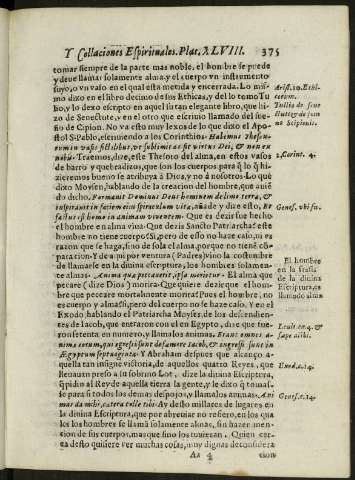 Y Collaciones Espirituales. Plat. XLVIII. 375
tomar siempre de la parte mas noble, el hombre se puede
y deue llamar solamente alma, y el cuerpo vn instrumento
suyo, o vn vaso en el qual esta metida y encerrada. Lo mis-
mo dixo en el libro decimo de los Ethicas, y del lo tomo Tu-
lio, y lo dexo escripto en aquel su tan elegante libro, que hi-
zo de Senectute, y en el otro que escriuio llamado del sue-
ño de Cipion. No va esto muy lexos de lo que dixo el Apo-
stol S. Pablo, escriuiendo a los Corinthios. Habemus Thesau-
rum in vasis fictilibus, vt sublimitas sit virtus Dei, & non ex
nobis. Traemos, dize, este Thesoro del alma, en estos vasos
de barro y quebradizos, que son los cuerpos para q̃ lo q̃ hi-
zieremos bueno se atribuya à Dios, y no à nosotros. Lo que
dixo Moysen, hablando de la creacion del hombre, que auiẽ
do dicho, Formauit Dominus Deus hominem de limo terræ, &
inspirauit in faciem eius spiraculum vitæ, añade y dize esto, Et
factus est homo in animam viuentem. Que es dezir fue hecho
el hombre en alma viua. Que dezis Sancto Patriarcha? este
hombre no tiene cuerpo? Si, pero de esso no haze caso, ni es
razon que se haga, sino de sola el alma, porque no tiene cõ-
paracion. Y de a mi por ventura (Padres) vino la costumbre
de llamarse en la diuina escriptura, los hombres solamen-
te almas. Anima quæ peccauerit, ipsa morietur. El alma que
pecare (dize Dios) morira. Que quiere dezir que el hom-
bre que pecare mortalmente morira? Pues el hombre, no
es cuerpo y alma? Si, pero del cuerpo no se haze caso. Y en el
Exodo, hablando el Patriarcha Moyses, de los descendien-
tes de Iacob, que entraron con el en Egypto, dize que fue-
ron setenta en numero, y llamalos animas. Erant omnes a-
nimæ eorum, qui egressi sunt de fæmore Iacob, & ingressi sunt in
Ægyptum septuaginta. Y Abraham despues que alcanço a-
quella tan insigne victoria, de aquellos quatro Reyes, que
lleuauan preso a su sobrino Lot, dize la diuina Escriptura,
q̃ pidio al Rey de aquella tierra la gente, y le dixo q̃ tomas-
se para si todos los demas despojos, y llamolos animas. Ani-
mas da mihi, cætera tolle tibi. Ay desto millares de lugares en
la diuina Escriptura, que por abreuiar no refiero, en los qua
les los hombres se llamã solamente almas, sin hazer men-
cion de sus cuerpos, mas que sino los tuuieran. Quien cer-
ca desto quisiere ver muchas cosas, muy dignas de considera
Aa 4
cion
Arist. 10. Ethi-
corum.
Tullio de sene
ctute & de som
no Scipionis.
2. Corint. 4.
Genes. vbi su.
El hombre
en la frasis
de la diuina
Escriptura, es
llamado alma
Exod. 1.
Genes. 14.